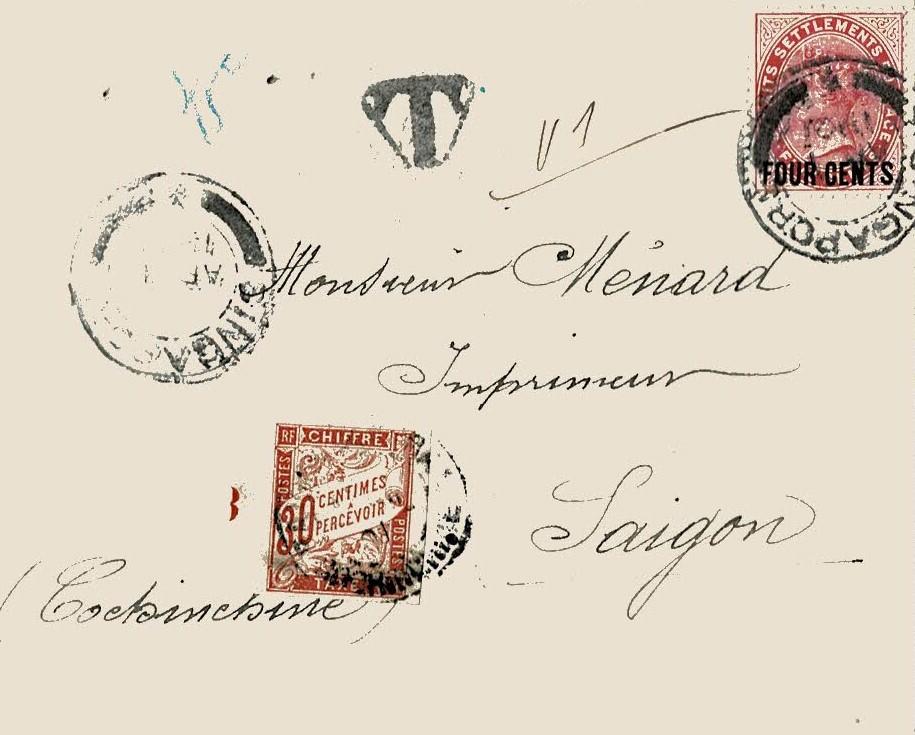 STRAITS SETTLEMENTS POSTAGE
FOUR CENTS
SINGAPORE
T
V 1
SINGA
Monsieur Ménard
Imprimeur
Saigon
RF CHIFFRE
POSTES
30 CENTIMES
À
PERCEVOIR
POSTES
TAXE
(Cochinchine)